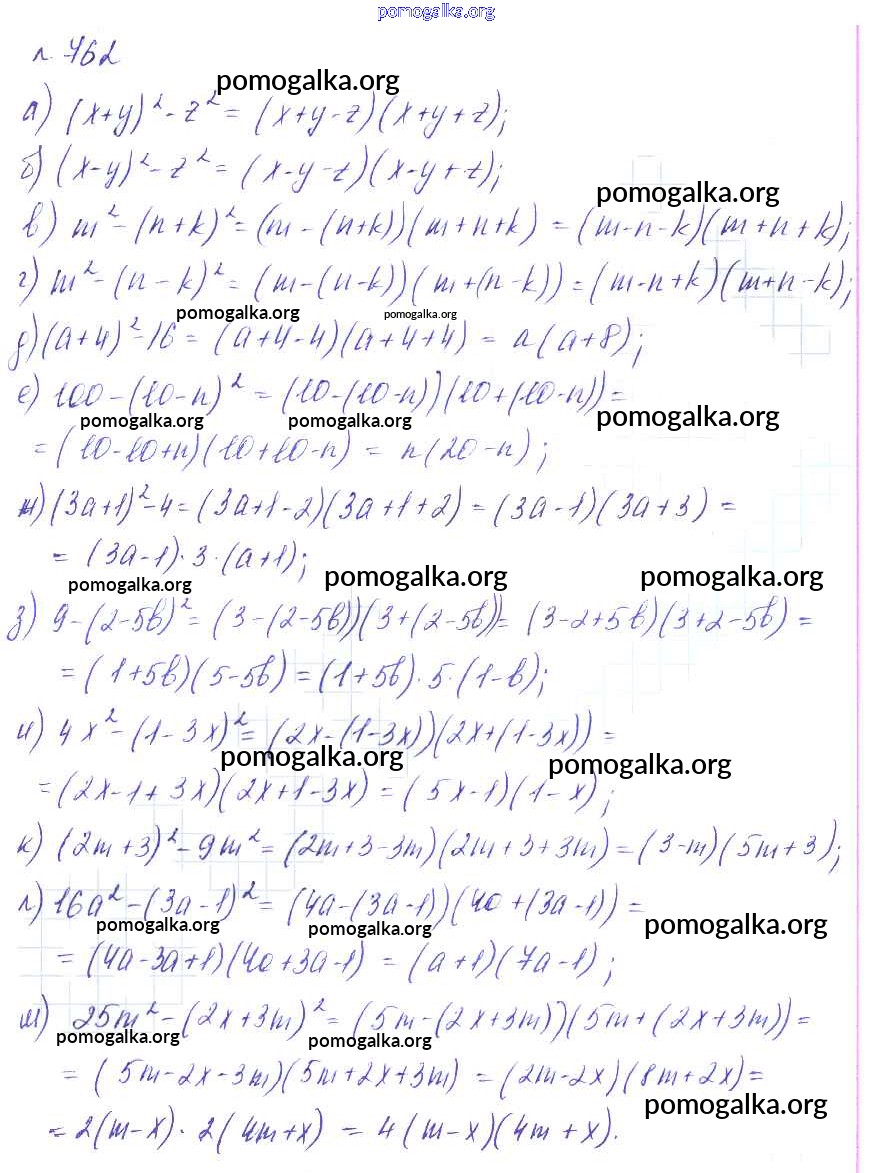 pomogalka.org
n. 762
pomogalka.org
а) (x+y)² - z² = (x+y-z)(x+y+z);
б) (x-y)² - z² = (x-y-z)(x-y+z);
pomogalka.org
в) m² - (n+k)² = (m - (n+k))(m+n+k) = (m-n-k)(m+n+k);
г) m² - (n-k)² = (m-(n-k))(m+(n-k)) = (m-n+k)(m+n-k);
pomogalka.org pomogalka.org
д) (a+4)² - 16 = (a+4-4)(a+4+4) = a(a+8);
е) 100 - (10-n)² = (10-(10-n))(10+(10-n)) =
pomogalka.org pomogalka.org pomogalka.org
= (10-10+n)(10+10-n) = n(20-n);
ж) (3a+1)² - 4 = (3a+1-2)(3a+1+2) = (3a-1)(3a+3) =
= (3a-1)·3·(a+1);
pomogalka.org pomogalka.org pomogalka.org
з) 9 - (2-5b)² = (3-(2-5b))(3+(2-5b)) = (3-2+5b)(3+2-5b) =
= (1+5b)(5-5b) = (1+5b)·5·(1-b);
и) 4x² - (1-3x)² = (2x-(1-3x))(2x+(1-3x)) =
pomogalka.org pomogalka.org
= (2x-1+3x)(2x+1-3x) = (5x-1)(1-x);
к) (2m+3)² - 9m² = (2m+3-3m)(2m+3+3m) = (3-m)(5m+3);
л) 16a² - (3a-1)² = (4a-(3a-1))(4a+(3a-1)) =
pomogalka.org pomogalka.org pomogalka.org
= (4a-3a+1)(4a+3a-1) = (a+1)(7a-1);
м) 25m² - (2x+3m)² = (5m-(2x+3m))(5m+(2x+3m)) =
pomogalka.org pomogalka.org
= (5m-2x-3m)(5m+2x+3m) = (2m-2x)(8m+2x) =
pomogalka.org
= 2(m-x)·2(4m+x) = 4(m-x)(4m+x).